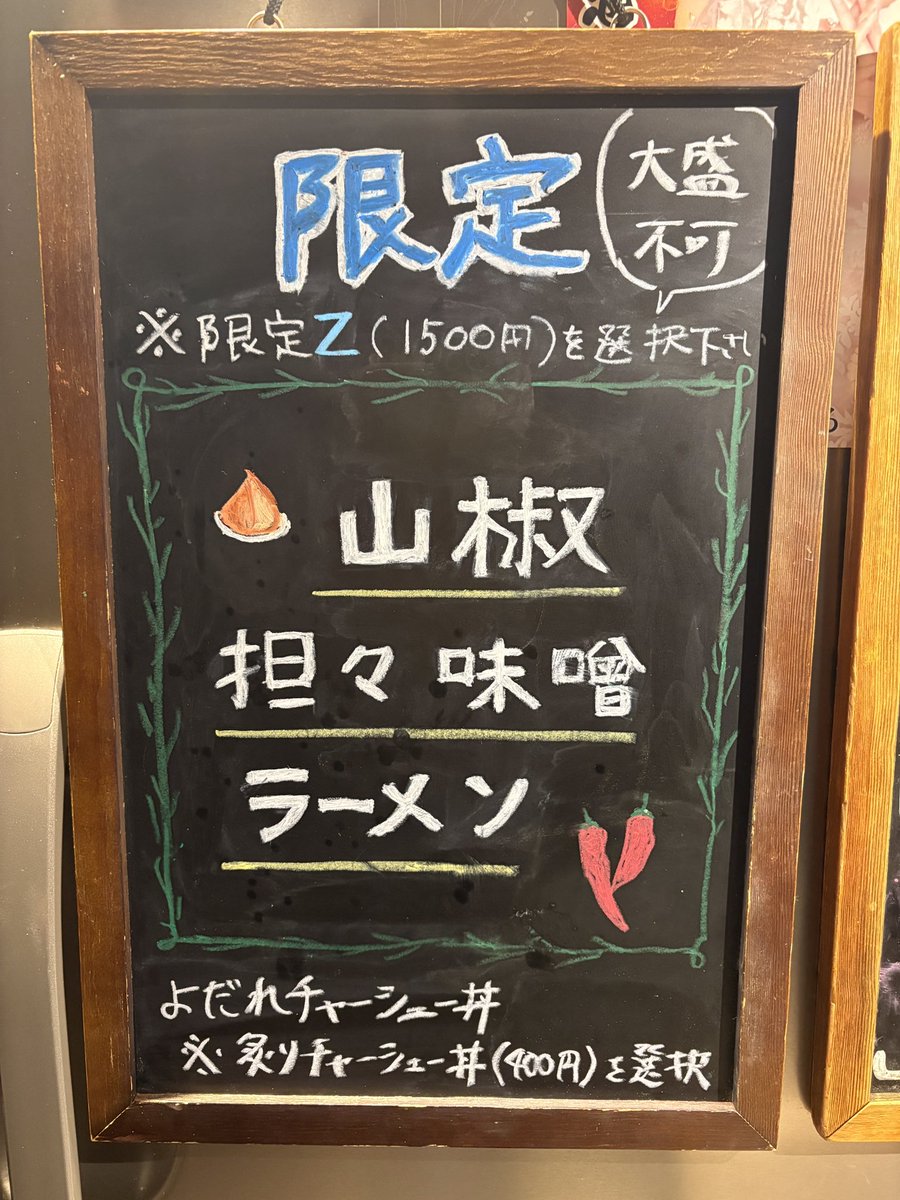 限定
大盛
不可
※限定Z(1500円)を選択下さい
山椒
担々味噌
ラーメン
よだれチャーシュー丼
※炙りチャーシュー丼(400円)を選択